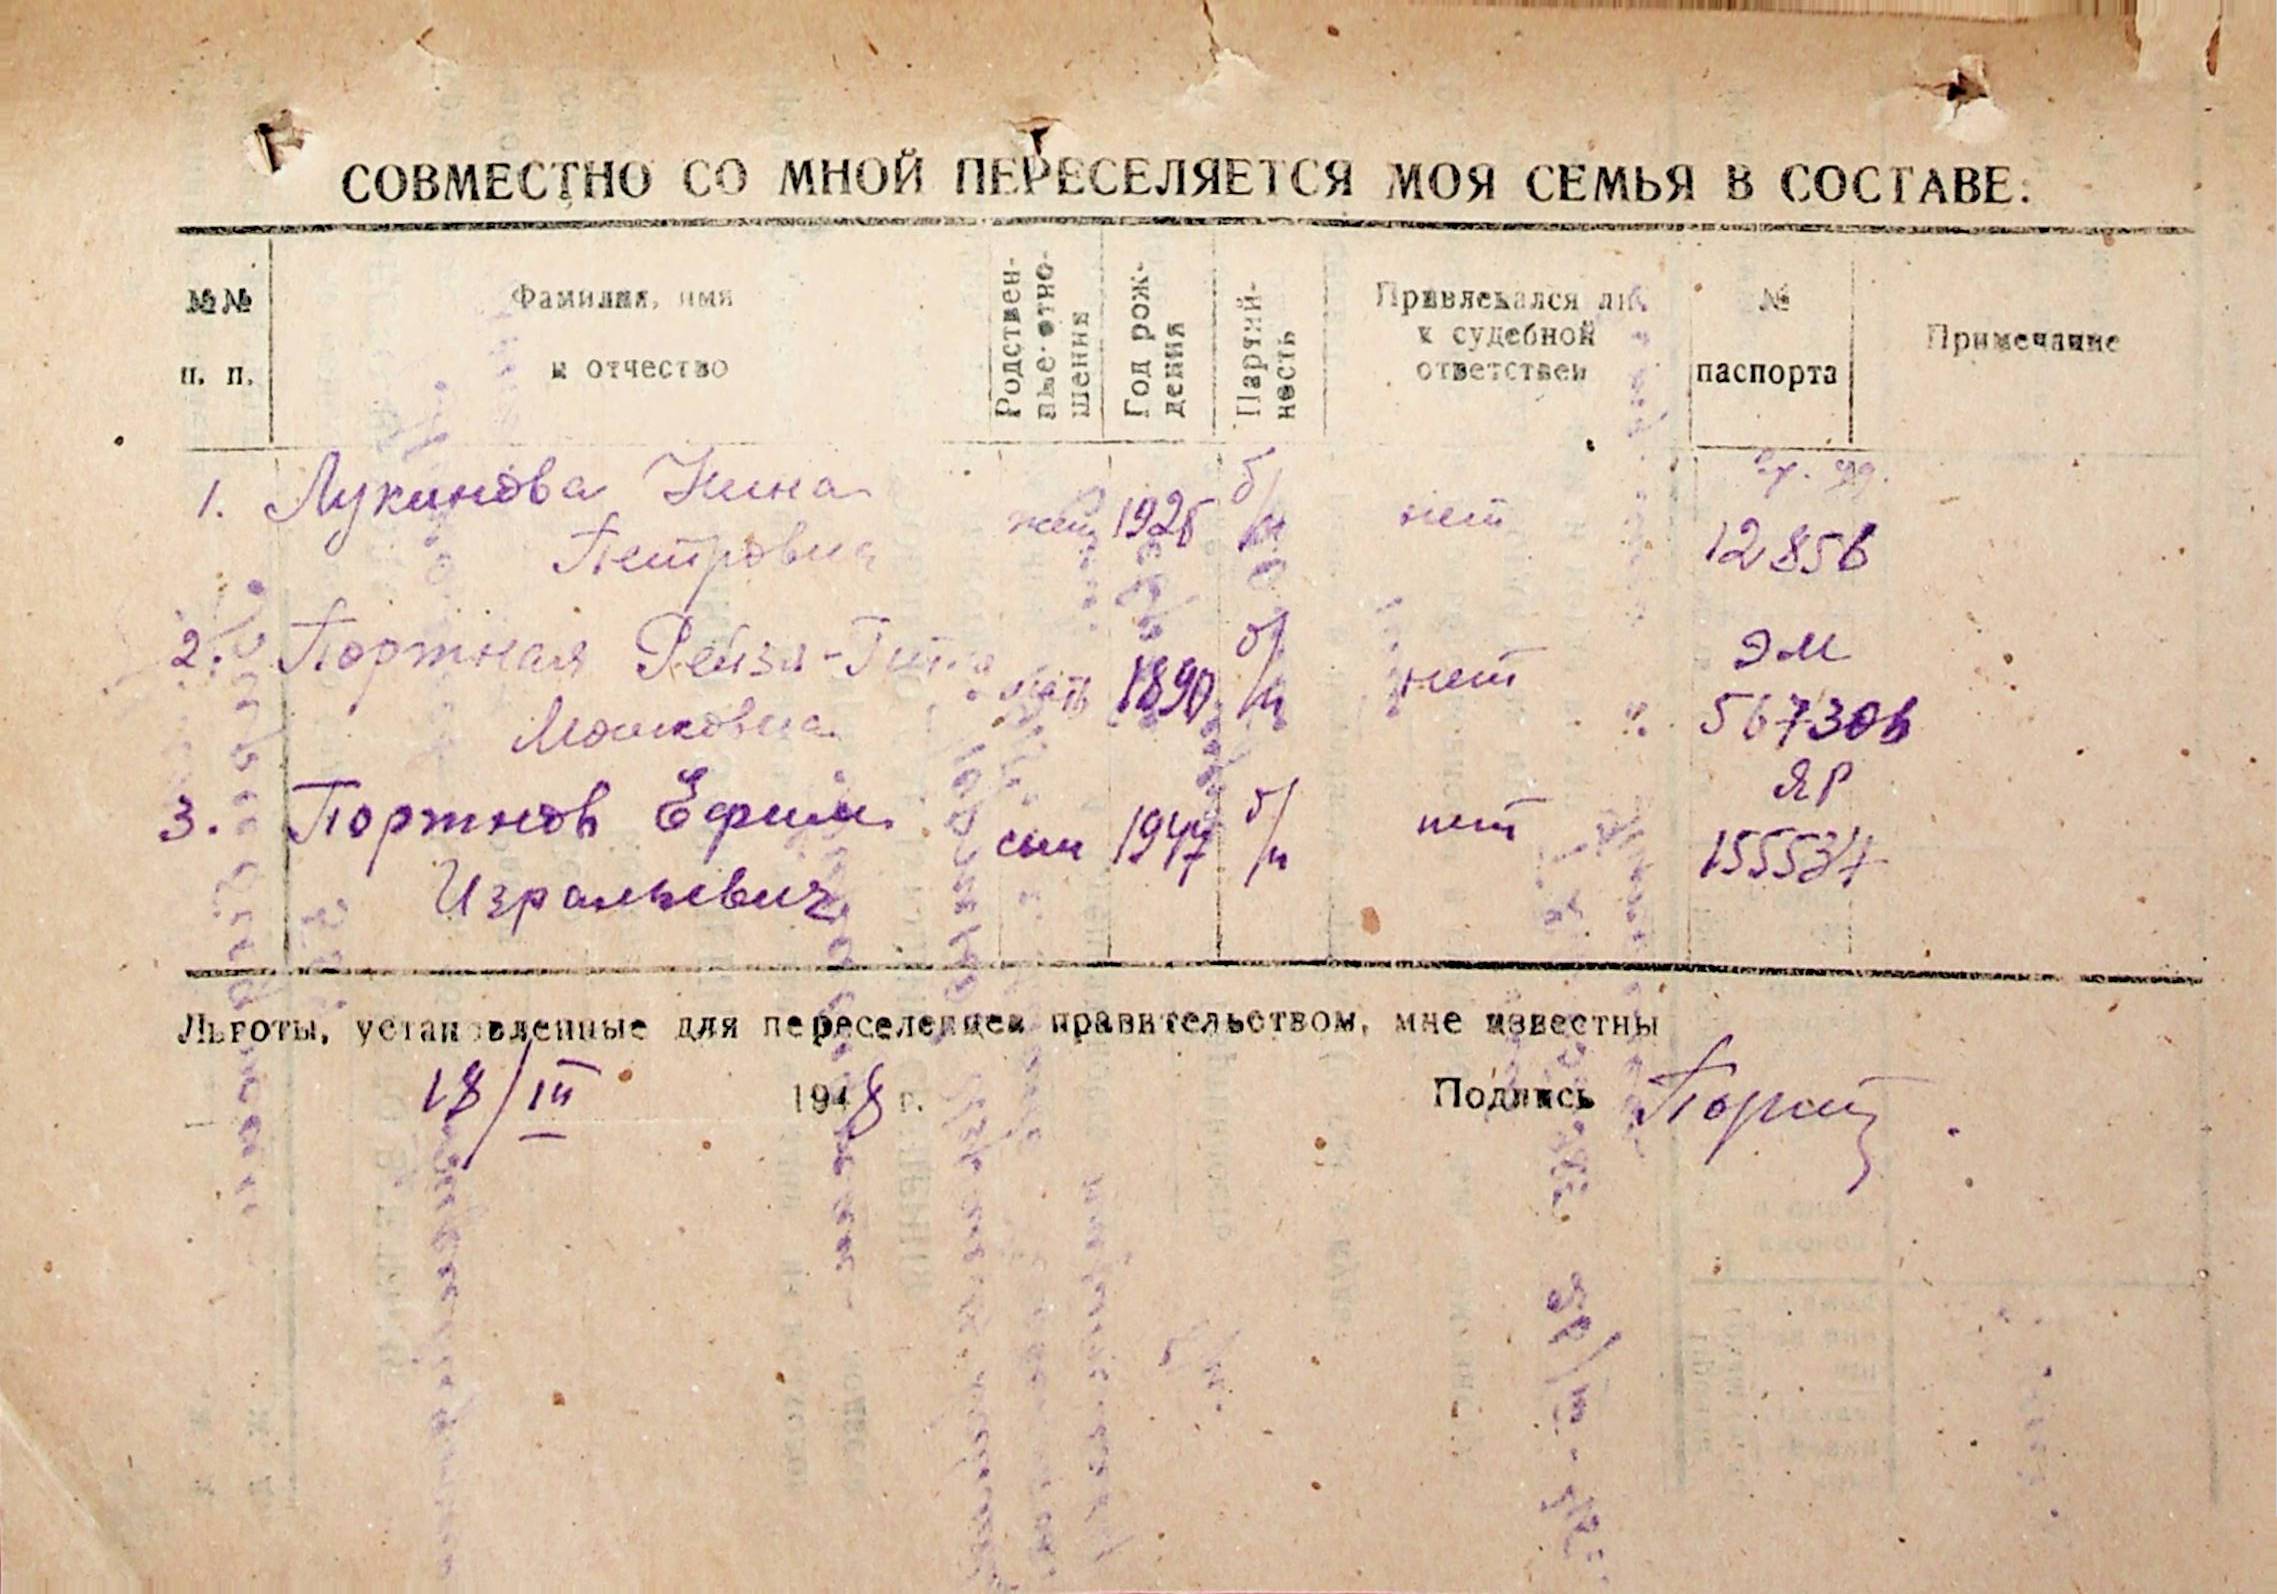 СОВМЕСТНО СО МНОЙ ПЕРЕСЕЛЯЕТСЯ МОЯ СЕМЬЯ В СОСТАВЕ:
№№ п. п.
Фамилия, имя и отчество
Родственные отношения
Год рождения
Партийность
Привлекался ли к судебной ответствен
№ паспорта
Примечание
1. Лукинова Нина жена 1925 б/п нет
Петровна 12856
2. Портная Рейза- мать 1890 б/п нет ЭМ
Мошковна 567306
3. Портнов Ефим сын 1947 б/п нет ЯР
Израильевич 155534
Льготы, установленные для переселенцев правительством, мне известны
18/III 1948 г. Подпись